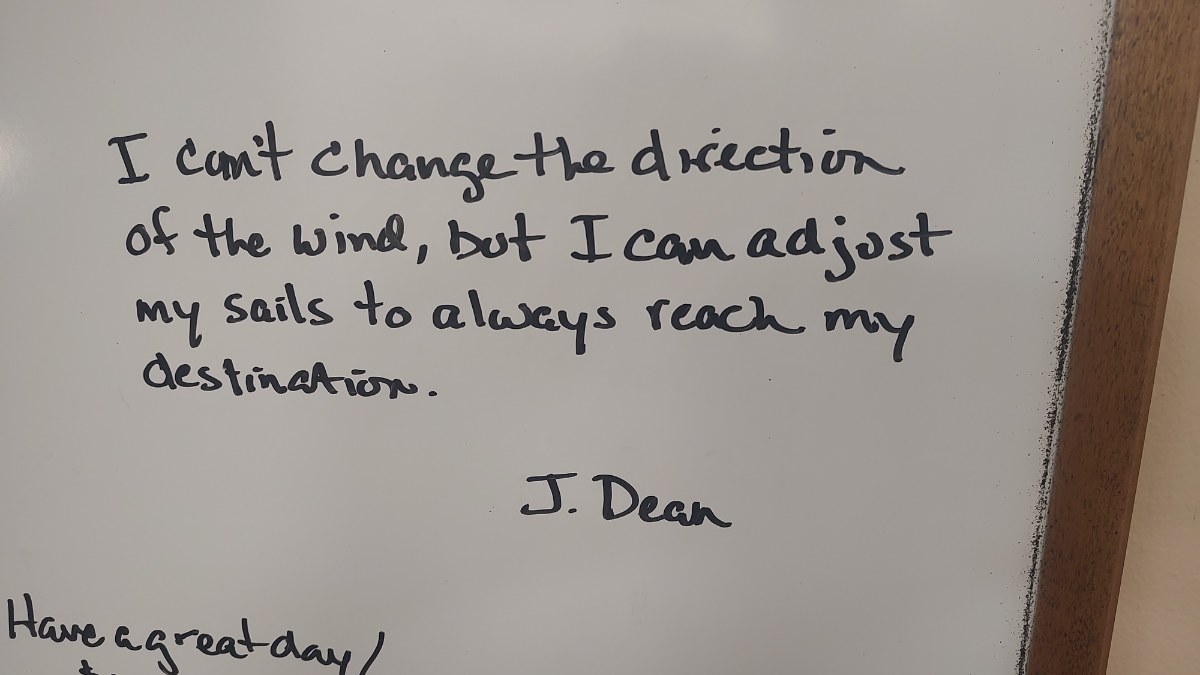 I can't change the direction
of the wind, but I can adjust
my sails to always reach my
destination.
J. Dean
Have a great day!